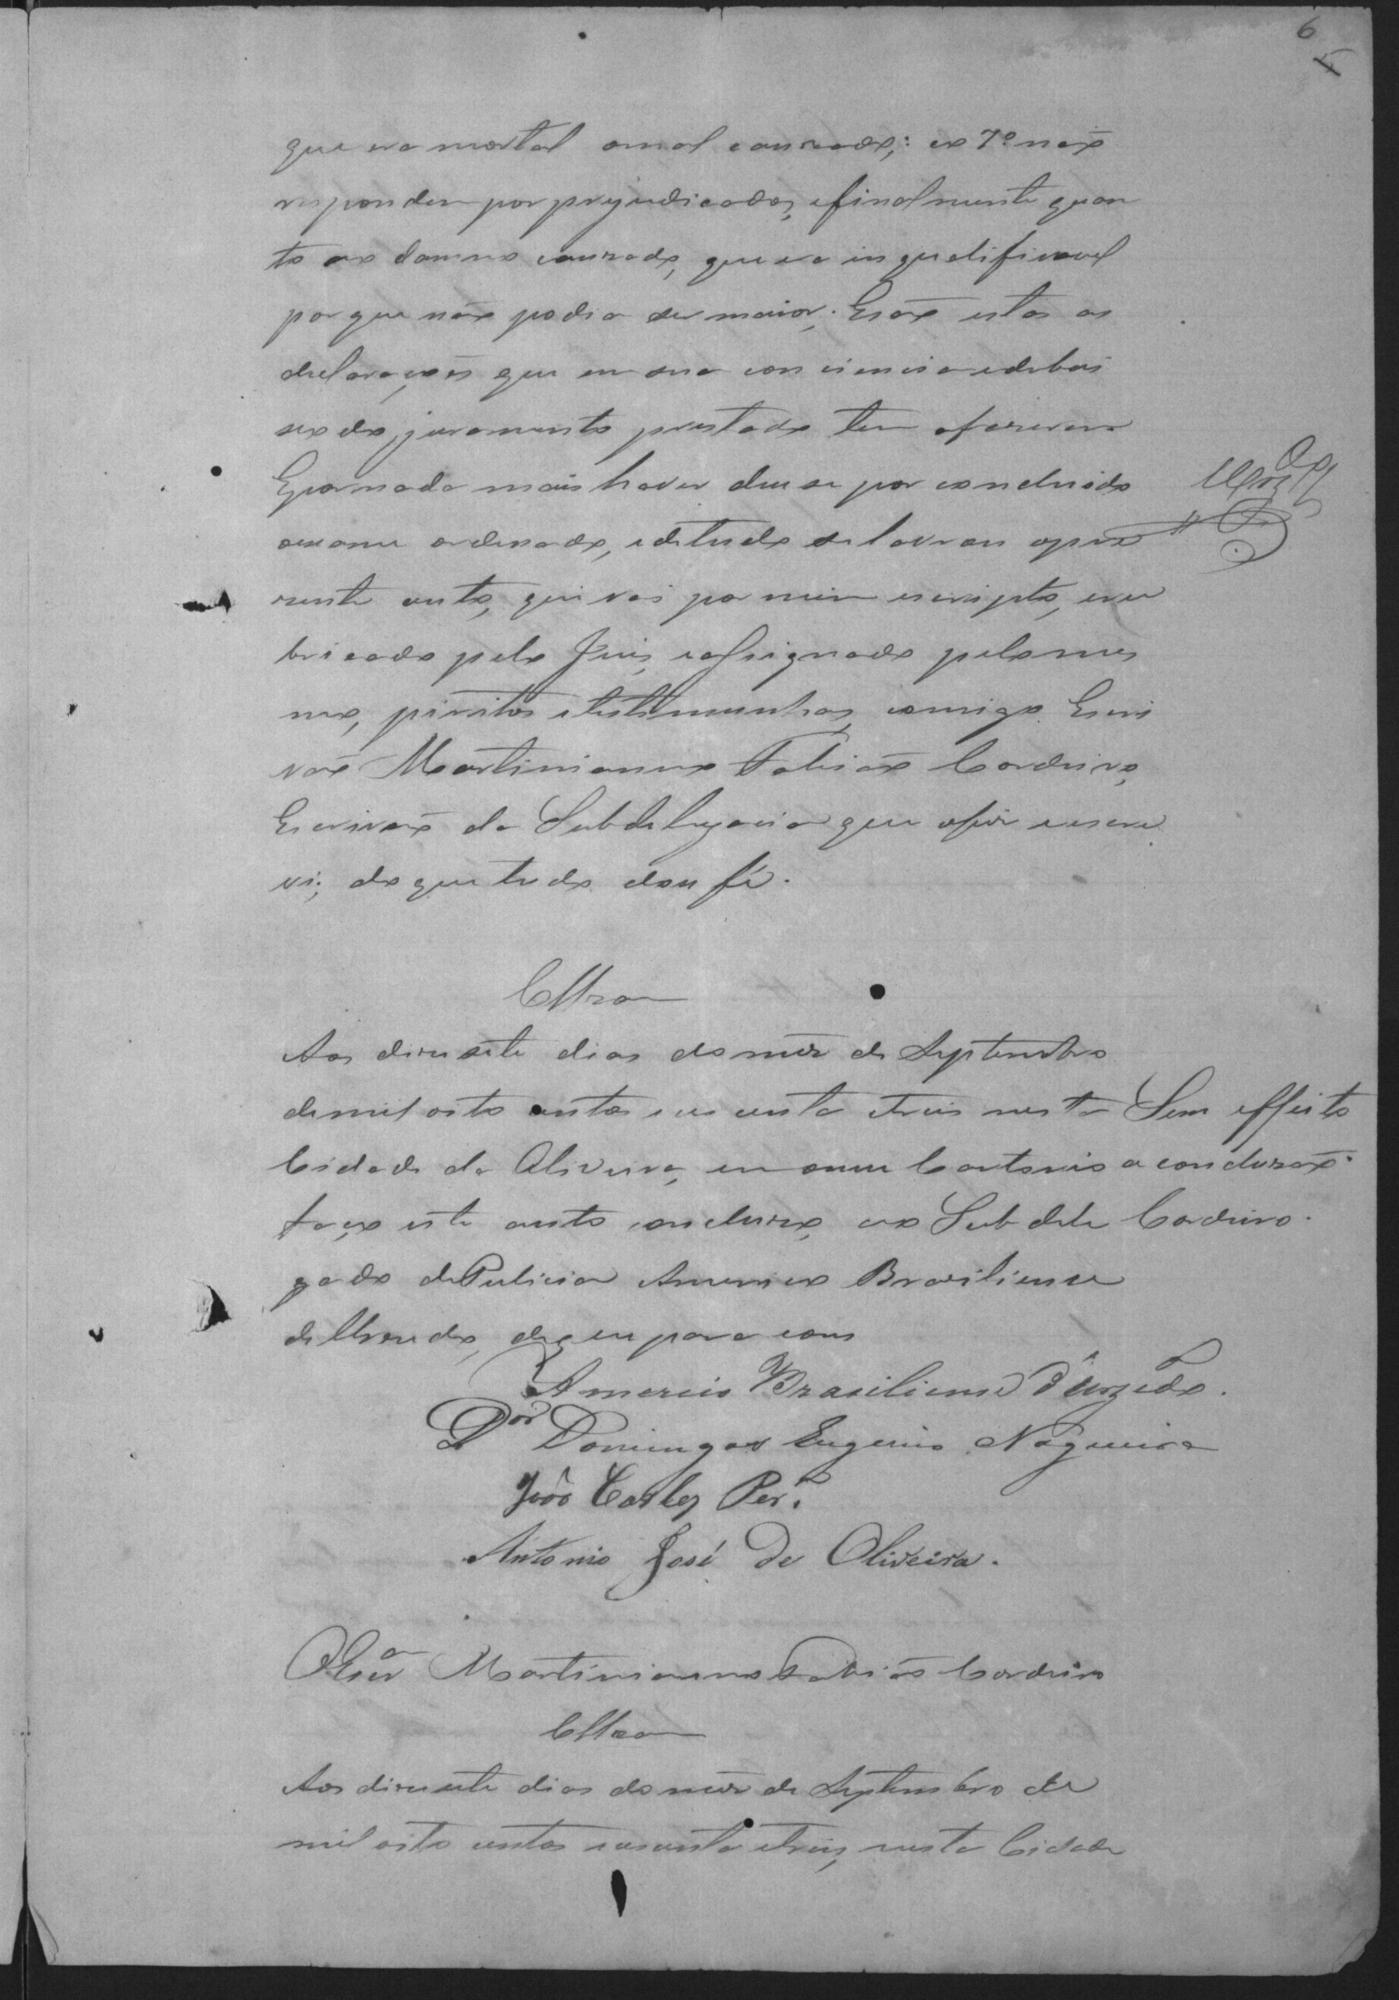 6
que era mortal o mal causado; ao 7º não
respondem por prejudicado, e finalmente quan
to ao damno causado, que era inqualificavel
porque não podia ser maior. Erão estas as
declarações que em sua consciencia e debai
xo do juramento prestado tem a fazerem
E por nada mais haver deu se por concluido
o exame ordenado, e de tudo se lavrou o pre
zente auto, que vai por mim escripto, e ru
bricado pelo Juiz, e assignado pelo mes
mo, peritos e testemunhas, comigo Escri
vão Martinianno Fabião Cordeiro,
Escrivão da Subdelegacia que o fiz e escre
vi; do que tudo dou fé.
Cllzao
Aos dezesete dias do mez de Septembro
de mil oito centos e sessenta e trez nesta Sem effeito
Cidade da Oliveira, em o meu Cartorio a concluzão.
faço este auto concluzo, ao Subdele Cordeiro.
gado de Policia Americo Braziliense
de Urzedo, do que para cons
Americo Braziliense d'Urzedo.
Dor Domingos Eugenio Nogueira
João Carlos Perª.
Antonio José de Oliveira.
O Escram Martinianno Fabião Cordeiro
Cllzao
Aos dezesete dias do mez de Septembro de
mil oito centos e sessenta e trez, nesta Cidade